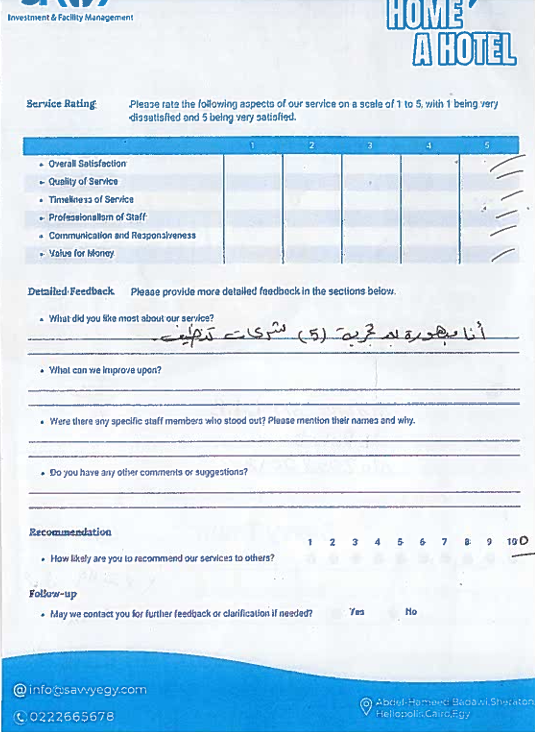 Investment & Facility Management
HOME
A HOTEL
Service Rating Please rate the following aspects of our service on a scale of 1 to 5, with 1 being very
dissatisfied and 5 being very satisfied.
1 2 3 4 5
Overall Satisfaction
Quality of Service
Timeliness of Service
Professionalism of Staff
Communication and Responsiveness
Value for Money
Detailed Feedback Please provide more detailed feedback in the sections below.
What did you like most about our service?
أنا مبهورة بعد تجربة (5) شركات تنظيف.
What can we improve upon?
Were there any specific staff members who stood out? Please mention their names and why.
Do you have any other comments or suggestions?
Recommendation
1 2 3 4 5 6 7 8 9 100
How likely are you to recommend our services to others?
Follow-up
May we contact you for further feedback or clarification if needed? Yes No
@ info@savvyegy.com
0222665678
Abdel-Hameed Badawi,Sheraton
Heliopolis,Cairo,Egy